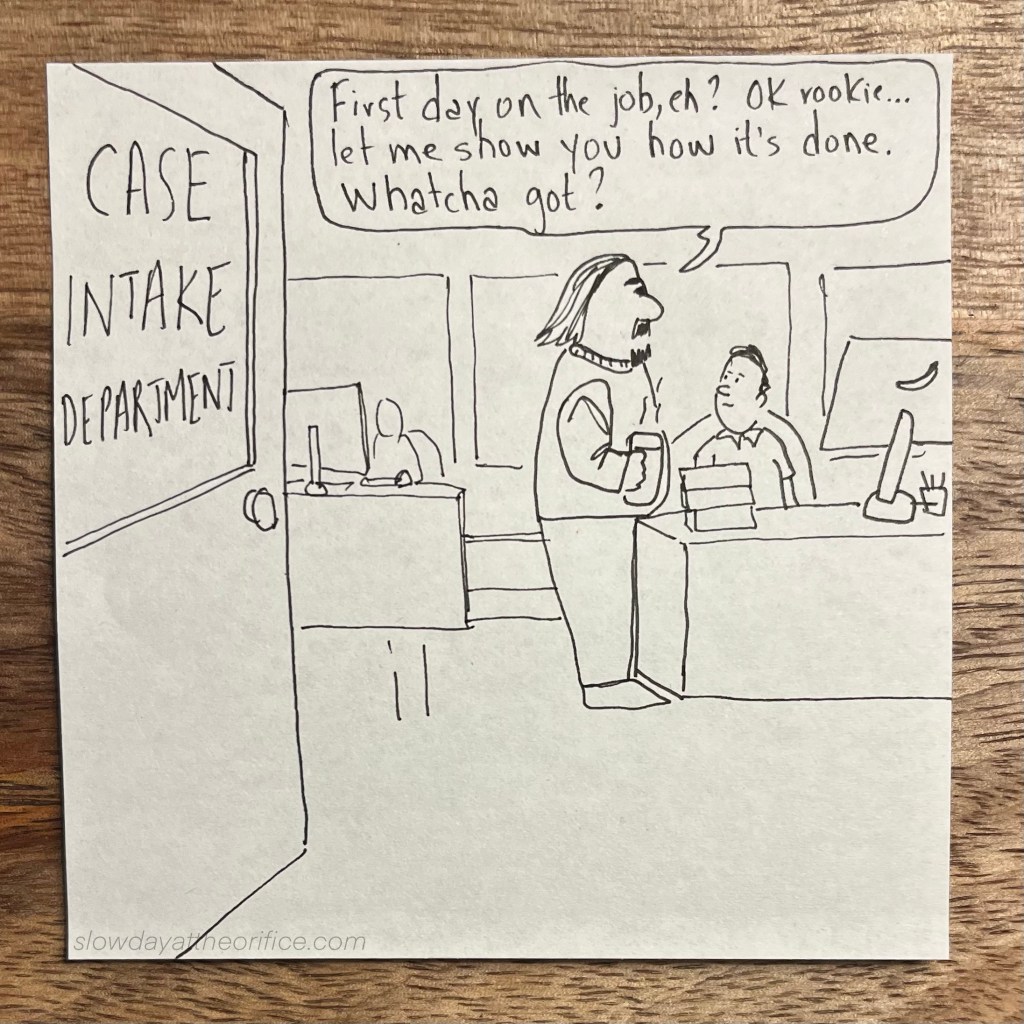 First day on the job, eh? OK rookie...
let me show you how it's done.
Whatcha got?
CASE
INTAKE
DEPARTMENT
slowdayattheorifice.com